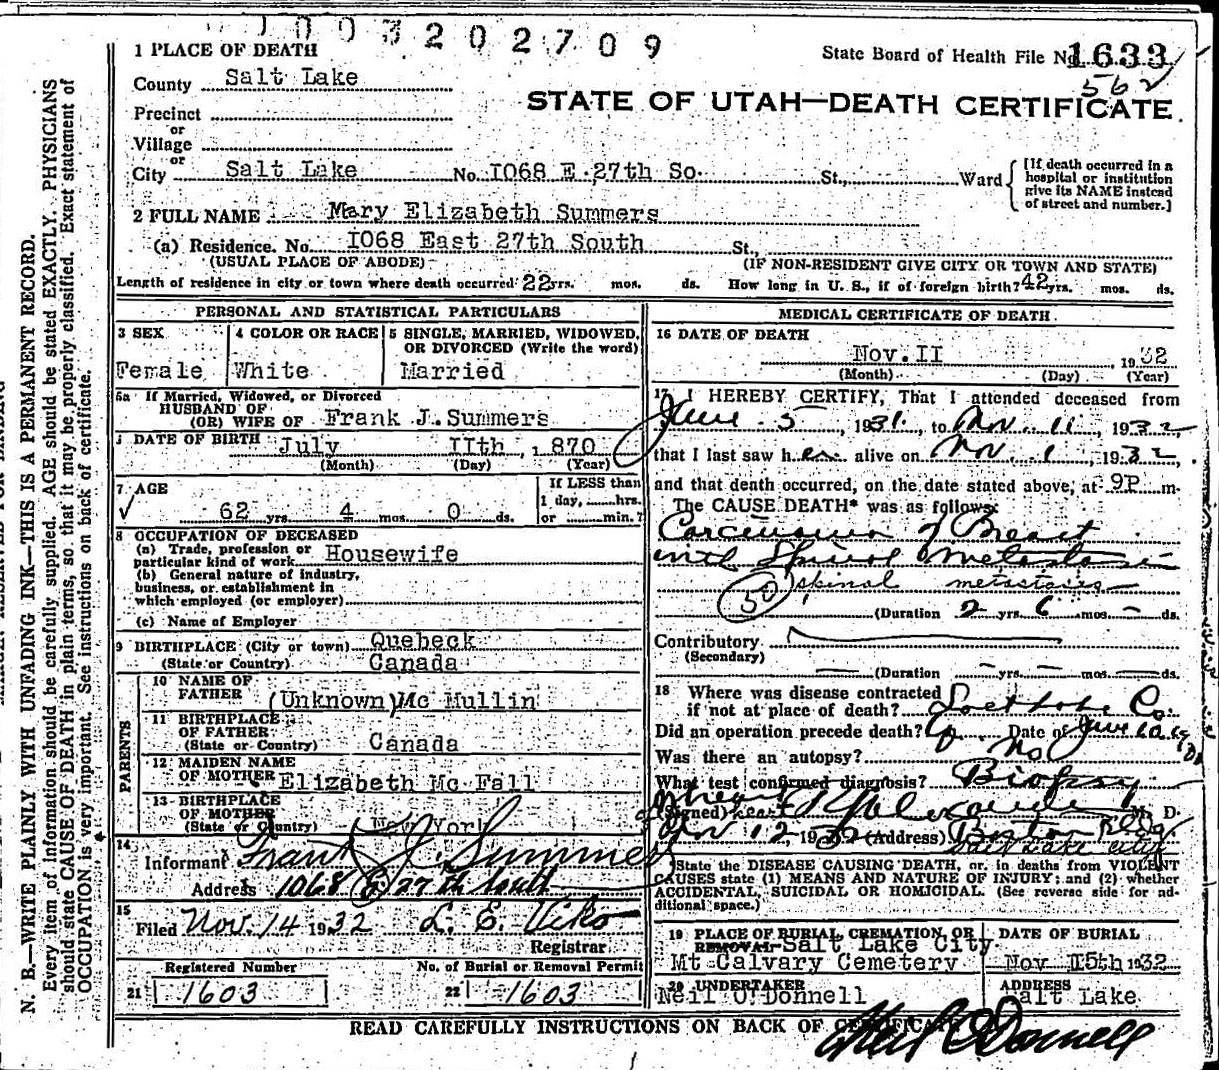 1003202709
1 PLACE OF DEATH
State Board of Health File No. 1633
562
County Salt Lake
STATE OF UTAH—DEATH CERTIFICATE
Precinct
or
Village
or
City Salt Lake No. I068 E. 27th So. St., Ward
[If death occurred in a
hospital or institution
give its NAME instead
of street and number.]
2 FULL NAME Mary Elizabeth Summers
(a) Residence. No. I068 East 27th South St.,
(USUAL PLACE OF ABODE) (IF NON-RESIDENT GIVE CITY OR TOWN AND STATE)
Length of residence in city or town where death occurred 22 yrs. mos. ds. How long in U. S., if of foreign birth? 42 yrs. mos. ds.
PERSONAL AND STATISTICAL PARTICULARS
3 SEX
Female
4 COLOR OR RACE
White
5 SINGLE, MARRIED, WIDOWED,
OR DIVORCED (Write the word)
Married
5a If Married, Widowed, or Divorced
HUSBAND OF
(OR) WIFE OF Frank J. Summers
DATE OF BIRTH July IIth, 1870
(Month) (Day) (Year)
7 AGE
62 yrs. 4 mos. 0 ds.
If LESS than
1 day, hrs.
or min.?
8 OCCUPATION OF DECEASED
(a) Trade, profession or
particular kind of work Housewife
(b) General nature of industry,
business, or establishment in
which employed (or employer)
(c) Name of Employer
9 BIRTHPLACE (City or town) Quebeck
(State or Country) Canada
PARENTS
10 NAME OF
FATHER (Unknown) Mc Mullin
11 BIRTHPLACE
OF FATHER
(State or Country) Canada
12 MAIDEN NAME
OF MOTHER Elizabeth Mc Fall
13 BIRTHPLACE
OF MOTHER
(State or Country) New York
14
Informant Frank J. Summers
Address 1068 E 27th South
15
Filed Nov. 14 1932 L. E. Viko
Registrar
Registered Number
21 1603
No. of Burial or Removal Permit
22 1603
MEDICAL CERTIFICATE OF DEATH
16 DATE OF DEATH
Nov. II 1932
(Month) (Day) (Year)
17 I HEREBY CERTIFY, That I attended deceased from
June 5, 1931, to Nov. 11, 1932,
that I last saw her alive on Nov. 1, 1932,
and that death occurred, on the date stated above, at 9P m.
The CAUSE DEATH* was as follows:
Carcinoma of Breast
with Spinal Metastasis
50 spinal metastasis
(Duration 2 yrs. 6 mos. — ds.
Contributory
(Secondary)
(Duration — yrs. — mos. — ds.
18 Where was disease contracted
if not at place of death? Co.
Did an operation precede death? Date of June
Was there an autopsy? No
What test confirmed diagnosis? Biopsy
(Signed) M. D.
Nov 12, 1932 (Address) Boston Bldg
Salt Lake City
*State the DISEASE CAUSING DEATH, or, in deaths from VIOLENT
CAUSES state (1) MEANS AND NATURE OF INJURY; and (2) whether
ACCIDENTAL, SUICIDAL OR HOMICIDAL. (See reverse side for ad-
ditional space.)
19 PLACE OF BURIAL, CREMATION, OR
REMOVAL Salt Lake City.
Mt Calvary Cemetery
DATE OF BURIAL
Nov I5th 1932
20 UNDERTAKER
Neil O'Donnell
ADDRESS
Salt Lake
Neil O'Donnell
READ CAREFULLY INSTRUCTIONS ON BACK OF CERTIFICATE
N. B.—WRITE PLAINLY WITH UNFADING INK—THIS IS A PERMANENT RECORD.
Every item of information should be carefully supplied. AGE should be stated EXACTLY. PHYSICIANS
should state CAUSE OF DEATH in plain terms, so that it may be properly classified. Exact statement of
OCCUPATION is very important. See instructions on back of certificate.